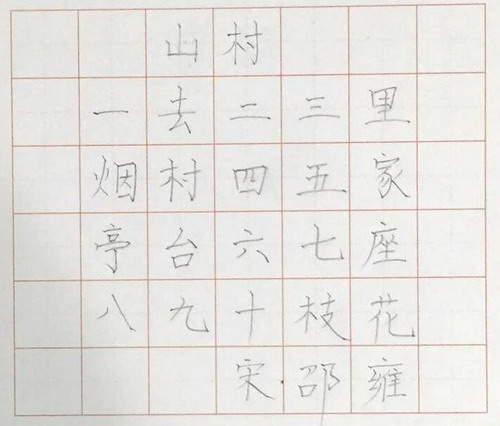 山村
一去二三里
烟村四五家
亭台六七座
八九十枝花
宋.邵雍